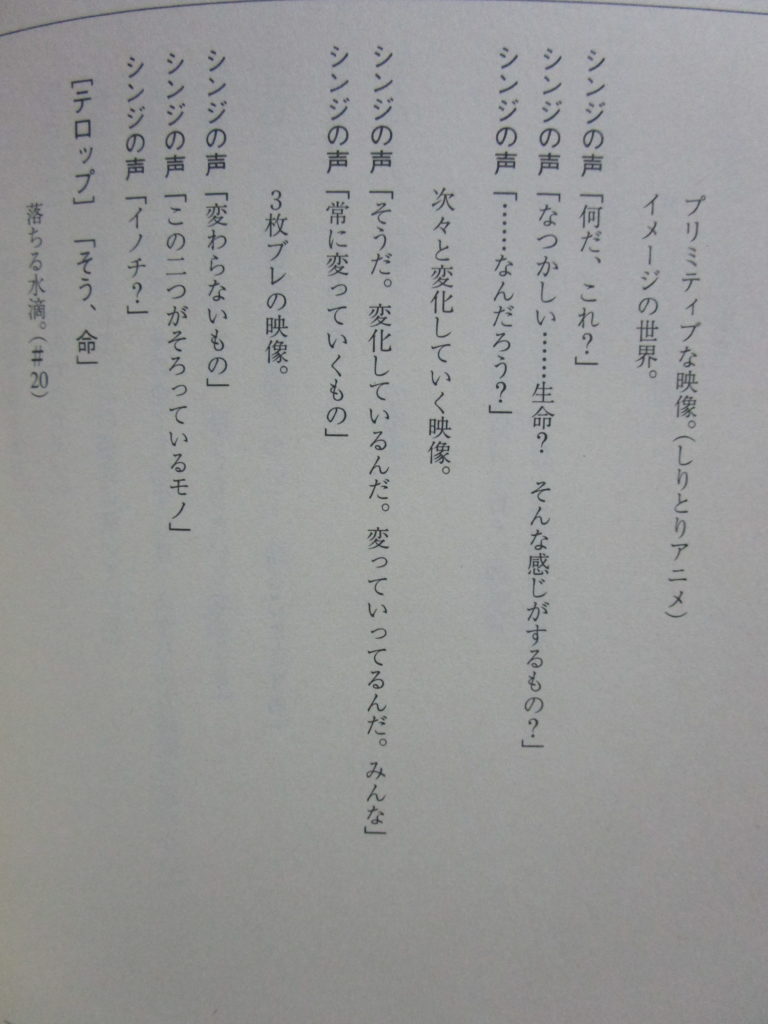 プリミティブな映像。(しりとりアニメ)
イメージの世界。
シンジの声「何だ、これ?」
シンジの声「なつかしい……生命? そんな感じがするもの?」
シンジの声「……なんだろう?」
次々と変化していく映像。
シンジの声「そうだ。変化しているんだ。変っていってるんだ。みんな」
シンジの声「常に変っていくもの」
3枚ブレの映像。
シンジの声「変わらないもの」
シンジの声「この二つがそろっているモノ」
シンジの声「イノチ?」
[テロップ]「そう、命」
落ちる水滴。(#20)